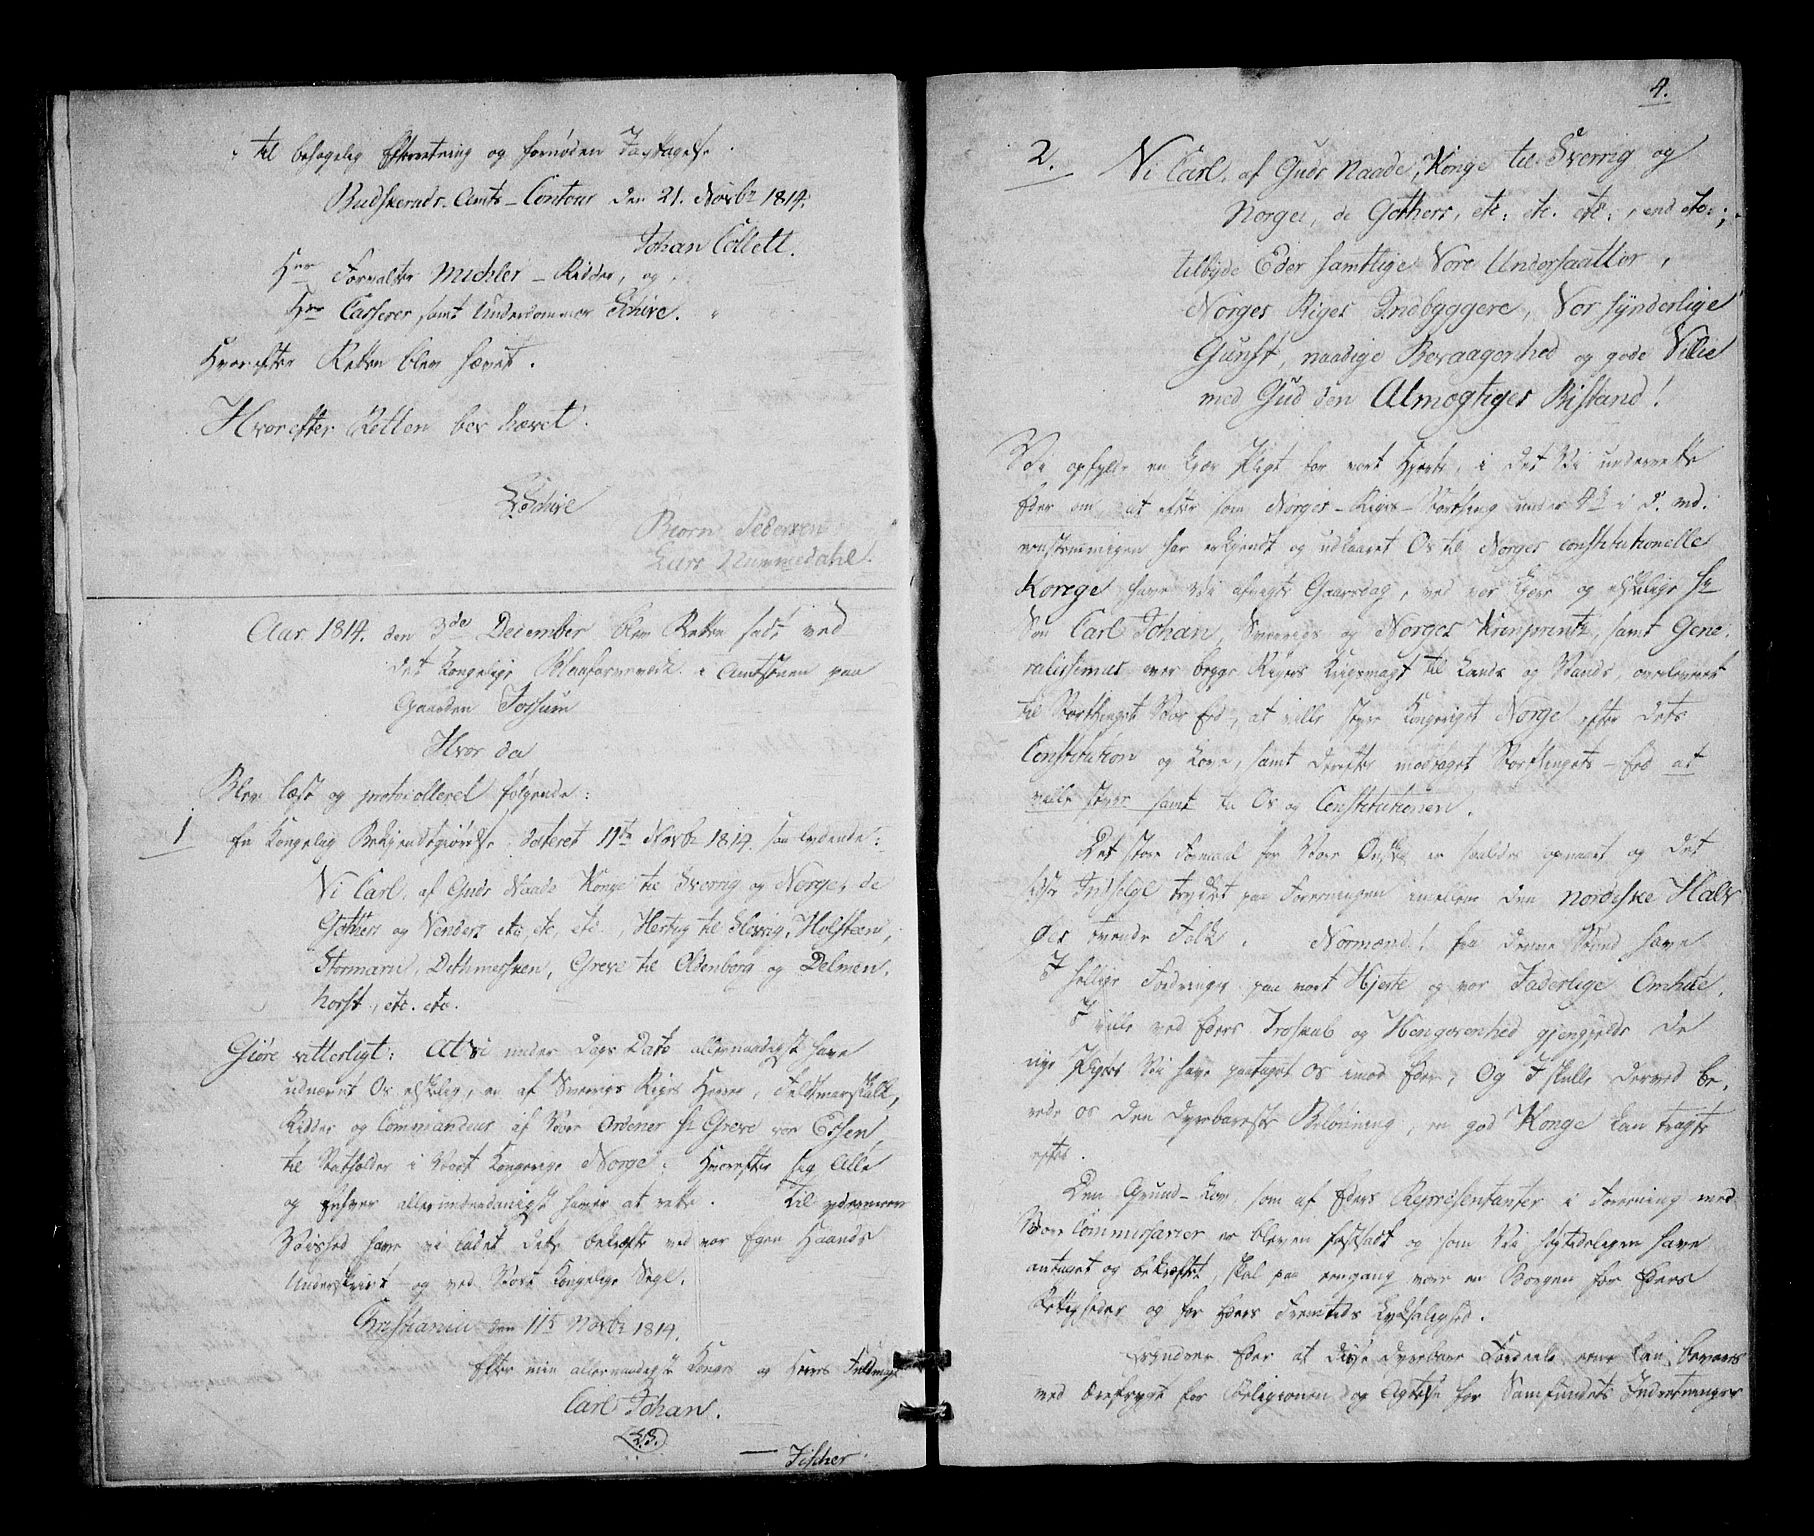 til behagelig Efterretning og fornøden Iagttagelse.
Budskeruds Amts-Contoir den 21. Novbr 1814.
Johan Collett.
Hrr Forvalter Michler-Ridder, og
Hrr Casserer samt Underdommer Schive.
Hvorefter Retten blev hævet.
Hvorefter Retten blev hævet.
Schive
Biørn Pedersen
Lars Nummedahl.
Aar 1814. den 3de December blev Retten sadt ved
det Kongelige Blaafarveværk i Amtstuen paa
Gaarden Fossum
Hvor da
Blev læst og protocolleret følgende:
1 En Kongelig Bekjendtgiørelse dateret 11te Novbr 1814. saa lydende:
Vi Carl, af Guds Naade Konge til Sverrig og Norge, de
Gothers og Venders etc. etc. etc., Hertug til Slesvig, Holsteen,
Stormarn, Dithmersken, Greve til Oldenborg og Delmen,
horst, etc. etc.
Giøre vitterligt: At Vi under Dags Dato allernaadigst have
udnævnt Os elskelig, en af Sverrigs Riges Herrer, Feldtmarskalk,
Ridder og Commandeur af Vore Ordener Hr Greve von Essen,
til Statholder i Vort Kongerige Norge; Hvorefter sig Alle
og Enhver allerunderdanigst haver at rette. Til ydermere
Vished have vi ladet dette bekræfte ved vor Egen Haands
Underskrivt og ved Vort Kongelige Segl.
Christiania den 11te Novbr 1814.
Efter min allernaadigste Konges og Herres Fuldmagt
Carl Johan.
L.S.
Fischer
4.
2. Vi Carl, af Guds Naade, Konge til Sverrig og
Norge, de Gothers, etc. etc. etc.,
tilbyde Eder samtlige Vore Undersaatter,
Norges Riges Indbyggere, Vor synderlige
Gunst, naadige Bevaagenhed og gode Villie
med Gud den Almægtiges Bistand!
Vi opfylde en kjær Pligt for vort Hjerte, i det Vi underrette
Eder om, at efter som Norges-Riges-Storthing under 4de i d. M.
eenstemmigen har erkjendt og udkaaret Os til Norges constitutionelle
Konge have Vi afvigte Gaarsdag, ved vor kjære og elskelige Hr
Søn Carl Johan, Sverrigs og Norges Kronprints, samt Gene,
ralissimus over begge Rigers Krigsmagt til Lands og Vands, overleveret
til Storthinget Vor Eed, at ville styre Kongeriget Norge efter dets
Constitution og Love, samt derefter modtaget Storthingets-Eed at
ville samt til Os og Constitutionen.
Det store Formaal for Vore Ønsker er saaledes opnaaet og det
sidste Indsegl trykket paa Foreningen imellem den nordiske Halv
Øes tvende Folk. Normænd! fra denne Stund have
I hellige Fordringer paa vort Hjerte og vor Faderlige Omhue.
I ville ved Eders Troskab og Hengivenhed gjengjelde de
nye Pligter Vi have paataget Os imod Eder, Og I skulle derved be,
rede os den dyrebareste Belønning, en god Konge kan tragte
efter.
Den Grund-Lov, som af Eders Representanter i Forening med
Vore Commissarier er bleven fastsadt og som Vi høitideligen have
antaget og bekræftet, skal paa eengang være en Borgen for Eders
Rettigheder og for Eders Fremtids Lyksalighed.
Erindrer Eder at disse dyrebare Fordeele ene kan bevares
ved Ærefrygt for Religionen og Agtelse for Samfundets Indretninger